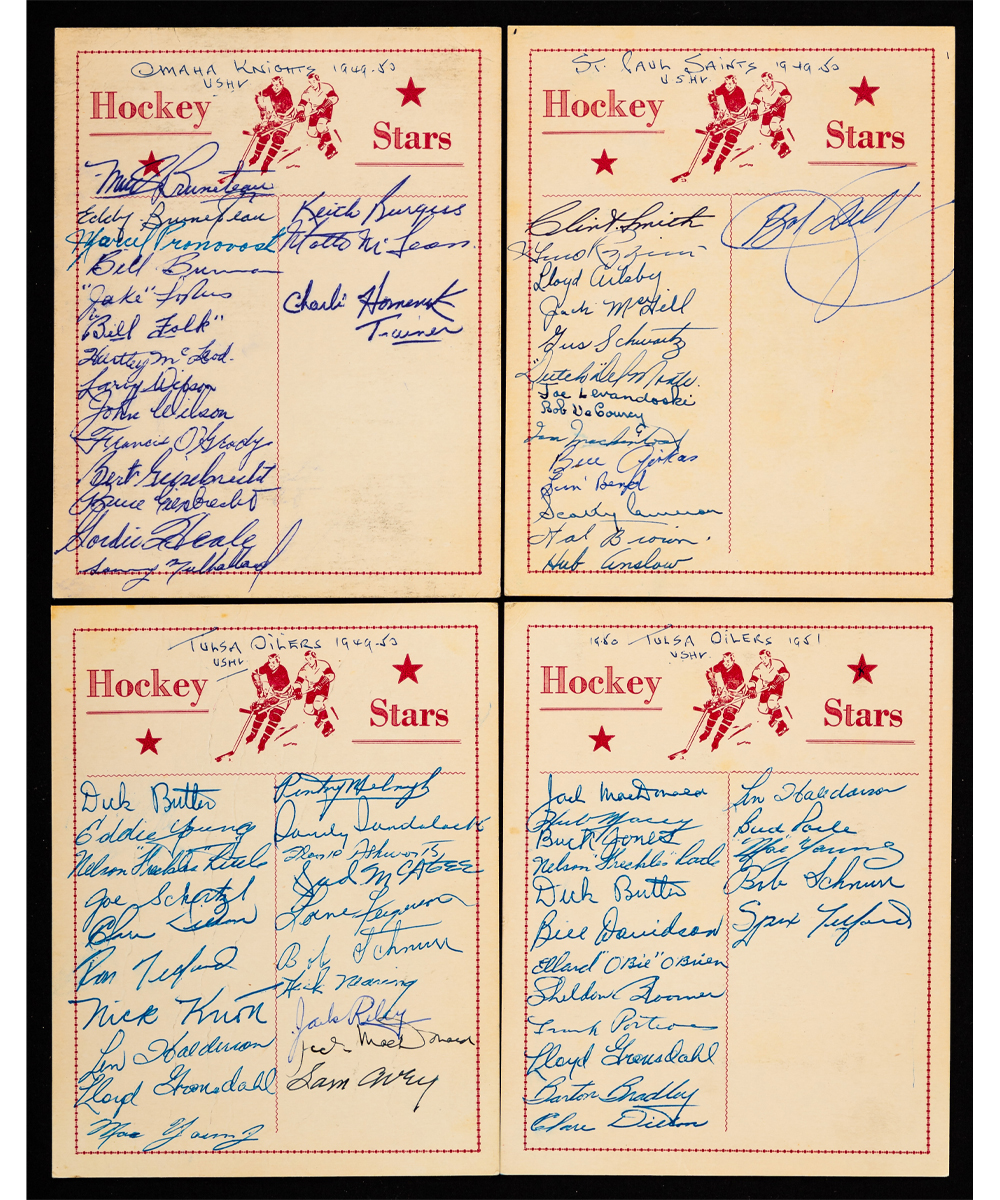 OMAHA KNIGHTS 1949-50
USHL
Hockey
Stars
Mud Bruneteau
Eddy Bruneteau
Marcel Pronovost
Bill
"Jake"
Bill Folk"
Hartley McLeod.
Larry Wilson
John Wilson
Francis O'Grady
Bert Giesebrecht
Bruce Giesbrecht
Gordie Heale
Sammy Mulholland
Keith Burgess
Motto McLean.
Charli Homenuk
Trainer
ST. PAUL SAINTS 1949-50
USHL
Hockey
Stars
Clint Smith
Gino Rozzini
Lloyd Ailsby
Jack McGill
Gus Schwartz
"Dutch" Delmonte.
Joe Levandoski
Bob DeCourcy
Ian Mackintosh
Bill
Lin Bend
Scotty Cameron
Hal Brown.
Hub Anslow
Bob
TULSA OILERS 1949-50
USHL
Hockey
Stars
Dick Butler
Eddie Young
Nelson "Freckles" Little
Joe Schertzl
Clare Dillon
Ron Telford
Nick Knott
Len Halderson
Lloyd Gronsdahl
Mac Young
Pentry Melnyk
Sandy Sandalack
Frank Ashworth
Jud McATEE
Lorne Ferguson
Bob Schnurr
Hick Moring
Jack Riley
Jack MacDonald
Sam Avey
1950 TULSA OILERS 1951
USHL
Hockey
Stars
Jack MacDonald
Hub Macey
Buck Jones
Nelson "Freckles" Little
Dick Butler
Bill Davidson
Ellard "OBie" OBrien
Sheldon Bloomer
Frank Porteous
Lloyd Gronsdahl
Barton Bradley
Clare Dillon
Len Halderson
Bud Poile
"Mac" Young
Bob Schnurr
Spin Telford